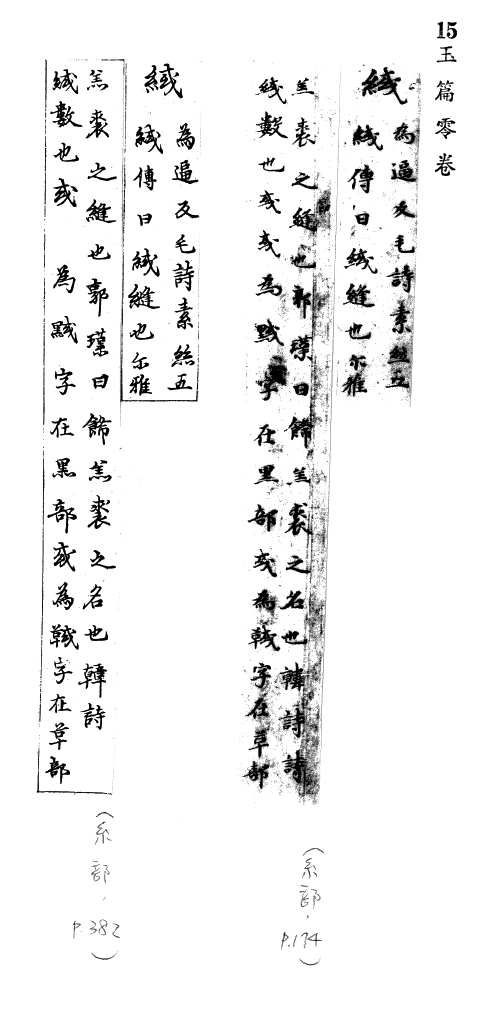 15玉篇零卷
緎為逼反毛詩素絲五
緎傳曰緎縫也尔雅
羔裘之縫也郭璞曰飾羔裘之名也韓詩詩
緎數也或或為黬字在黒部或為䩐字在草部
(糸部,P.174)
緎為逼反毛詩素絲五
緎傳曰緎縫也尔雅
羔裘之縫也郭璞曰飾羔裘之名也韓詩
緎數也或 為黬字在黒部或為䩐字在草部
(糸部,P.382)